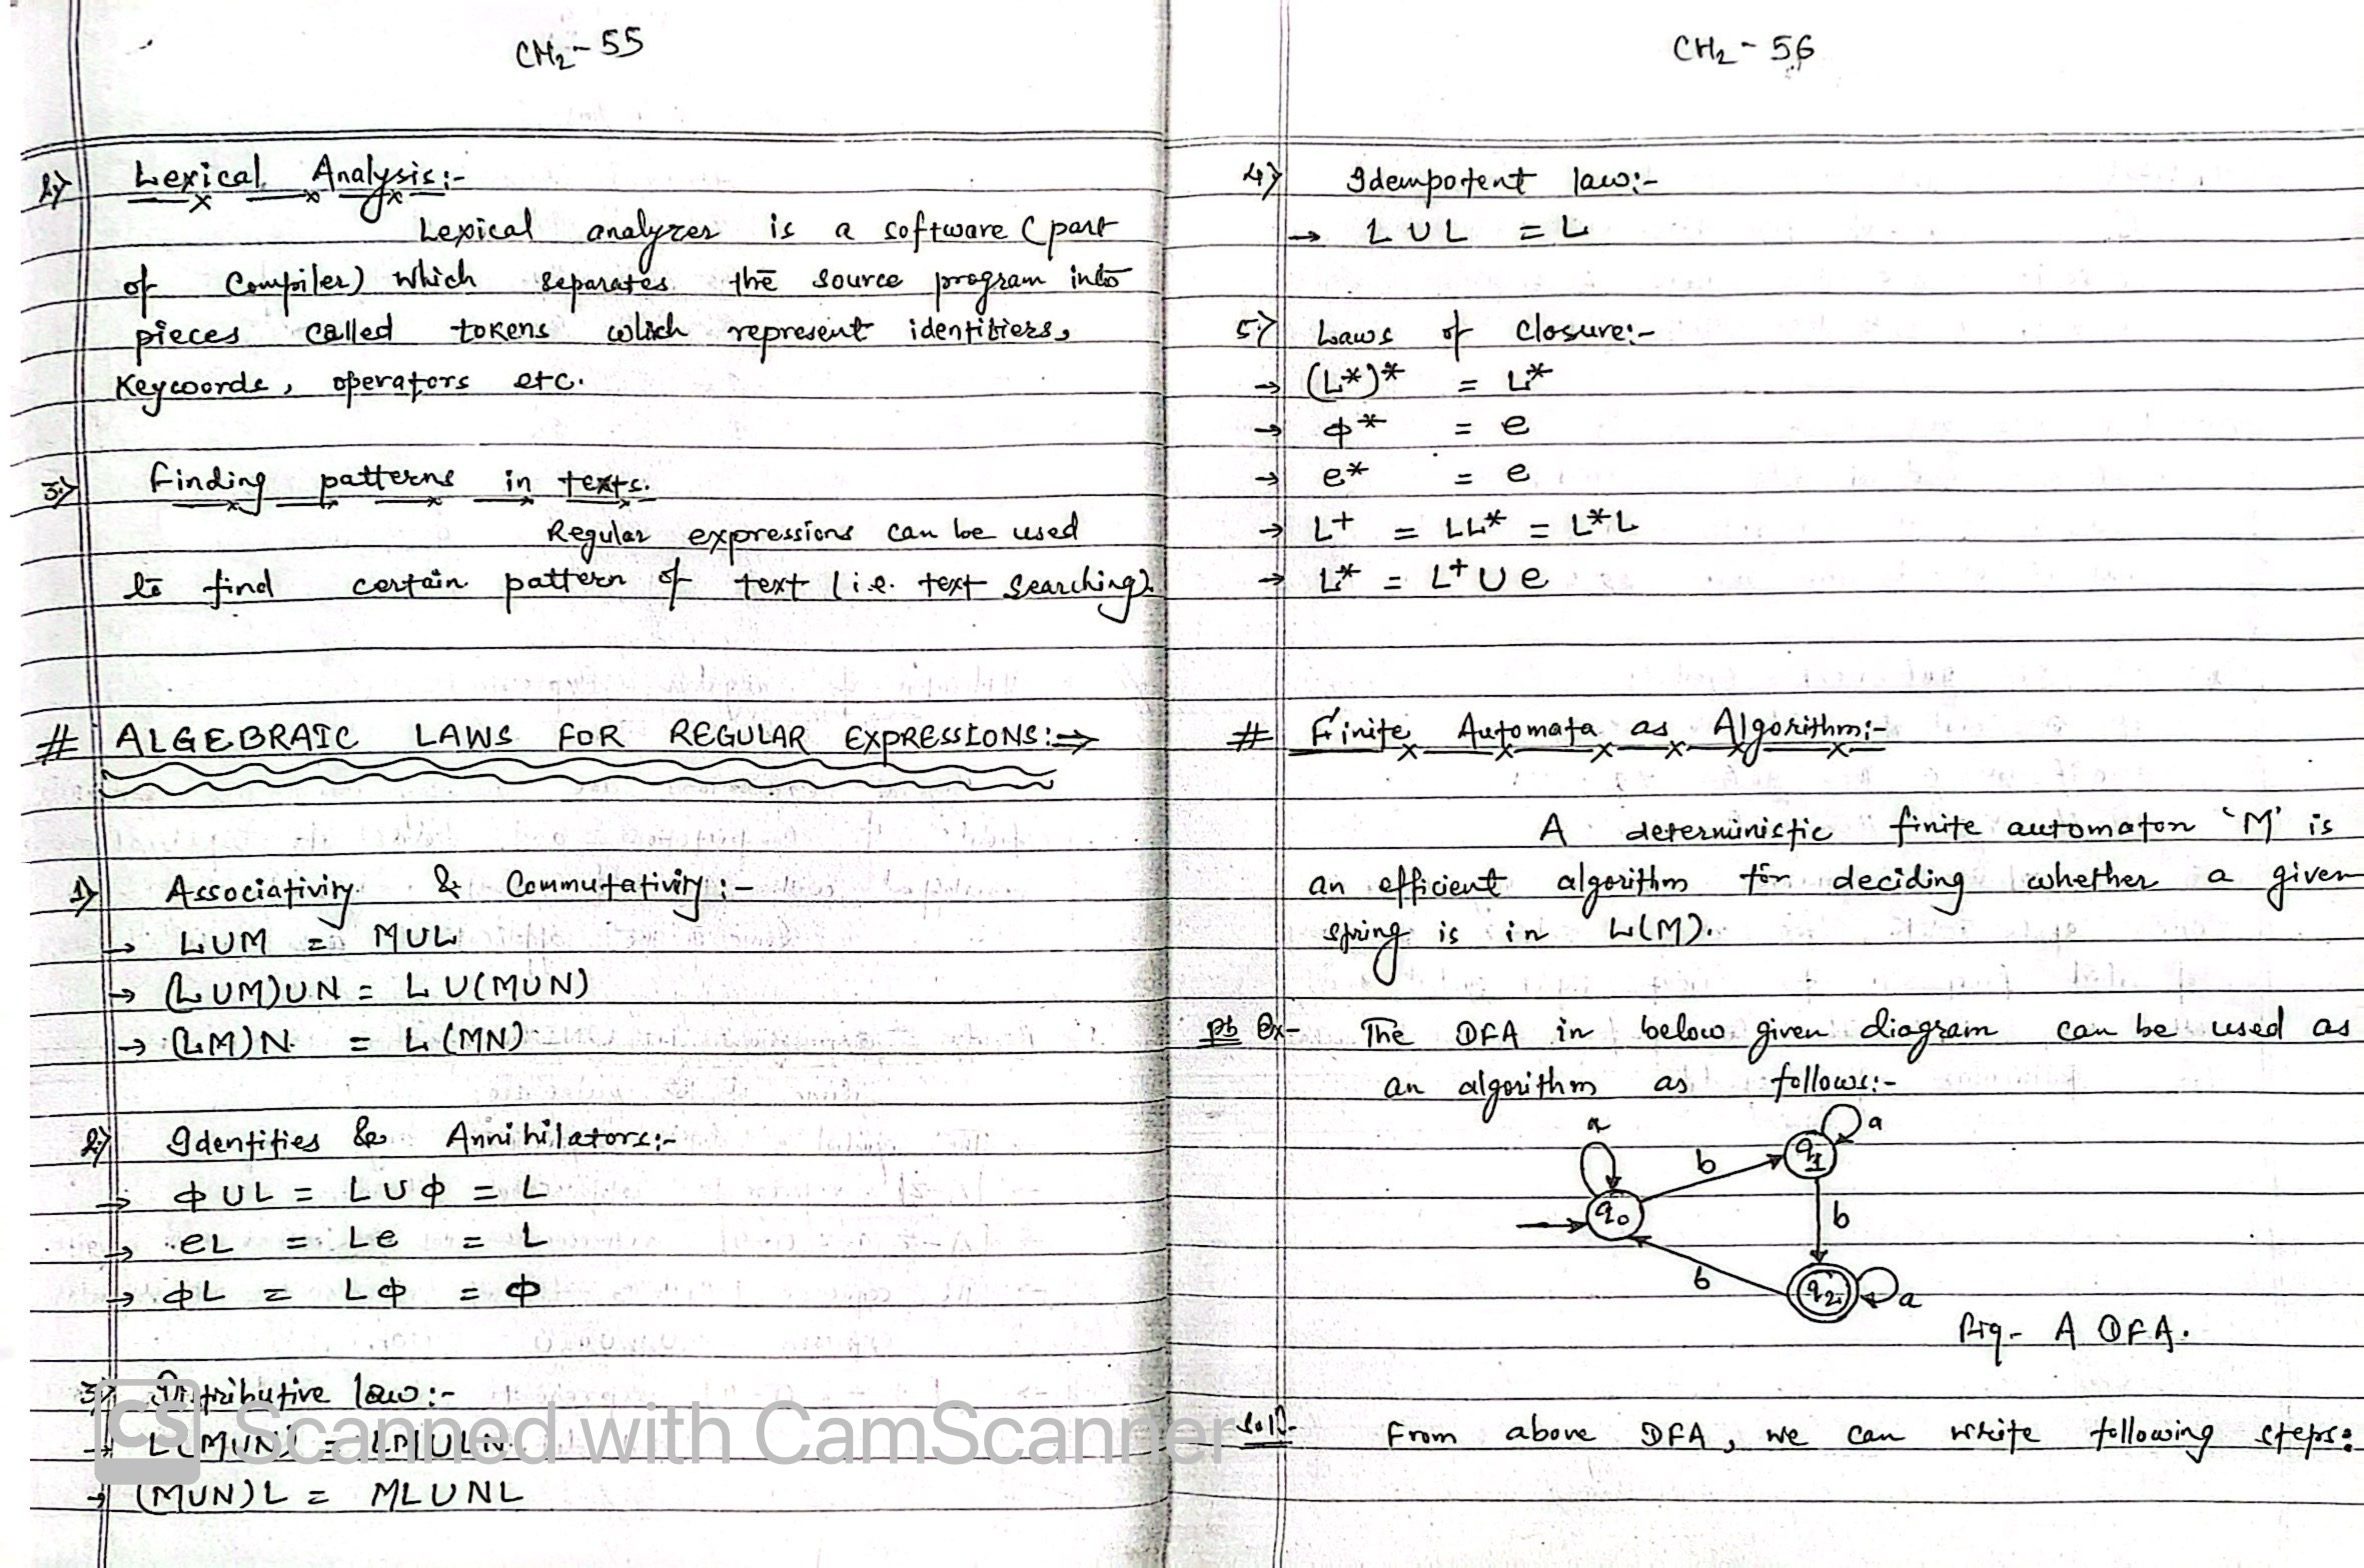 CH2-55
2) Lexical Analysis:-
Lexical analyzer is a software (part
of Compiler) which separates the source program into
pieces called tokens which represent identifiers,
Keywords, operators etc.
3.) Finding patterns in texts.
Regular expressions can be used
to find certain pattern of text (i.e. text searching).
# ALGEBRAIC LAWS FOR REGULAR EXPRESSIONS:⇒
1) Associativity & Commutativity:-
→ LUM = MUL
→ (LUM)UN = LU(MUN)
→ (LM)N = L(MN)
2.) Identities & Annihilators:-
→ ϕUL = LUϕ = L
→ eL = Le = L
→ ϕL = Lϕ = ϕ
3) Distributive law:-
→ L(MUN) = LMULN
→ (MUN)L = MLUNL
CS Scanned with CamScanner
CH2-56
4.) Idempotent law:-
→ LUL = L
5.) Laws of Closure:-
→ (L*)* = L*
→ ϕ* = e
→ e* = e
→ L+ = LL* = L*L
→ L* = L+ U e
# Finite Automata as Algorithm:-
A deterministic finite automaton 'M' is
an efficient algorithm for deciding whether a given
string is in L(M).
Ex- The DFA in below given diagram can be used as
an algorithm as follows:-
a
a
b
q1
q0
b
b
q2
a
Fig- A DFA.
Soln- From above DFA, we can write following steps: